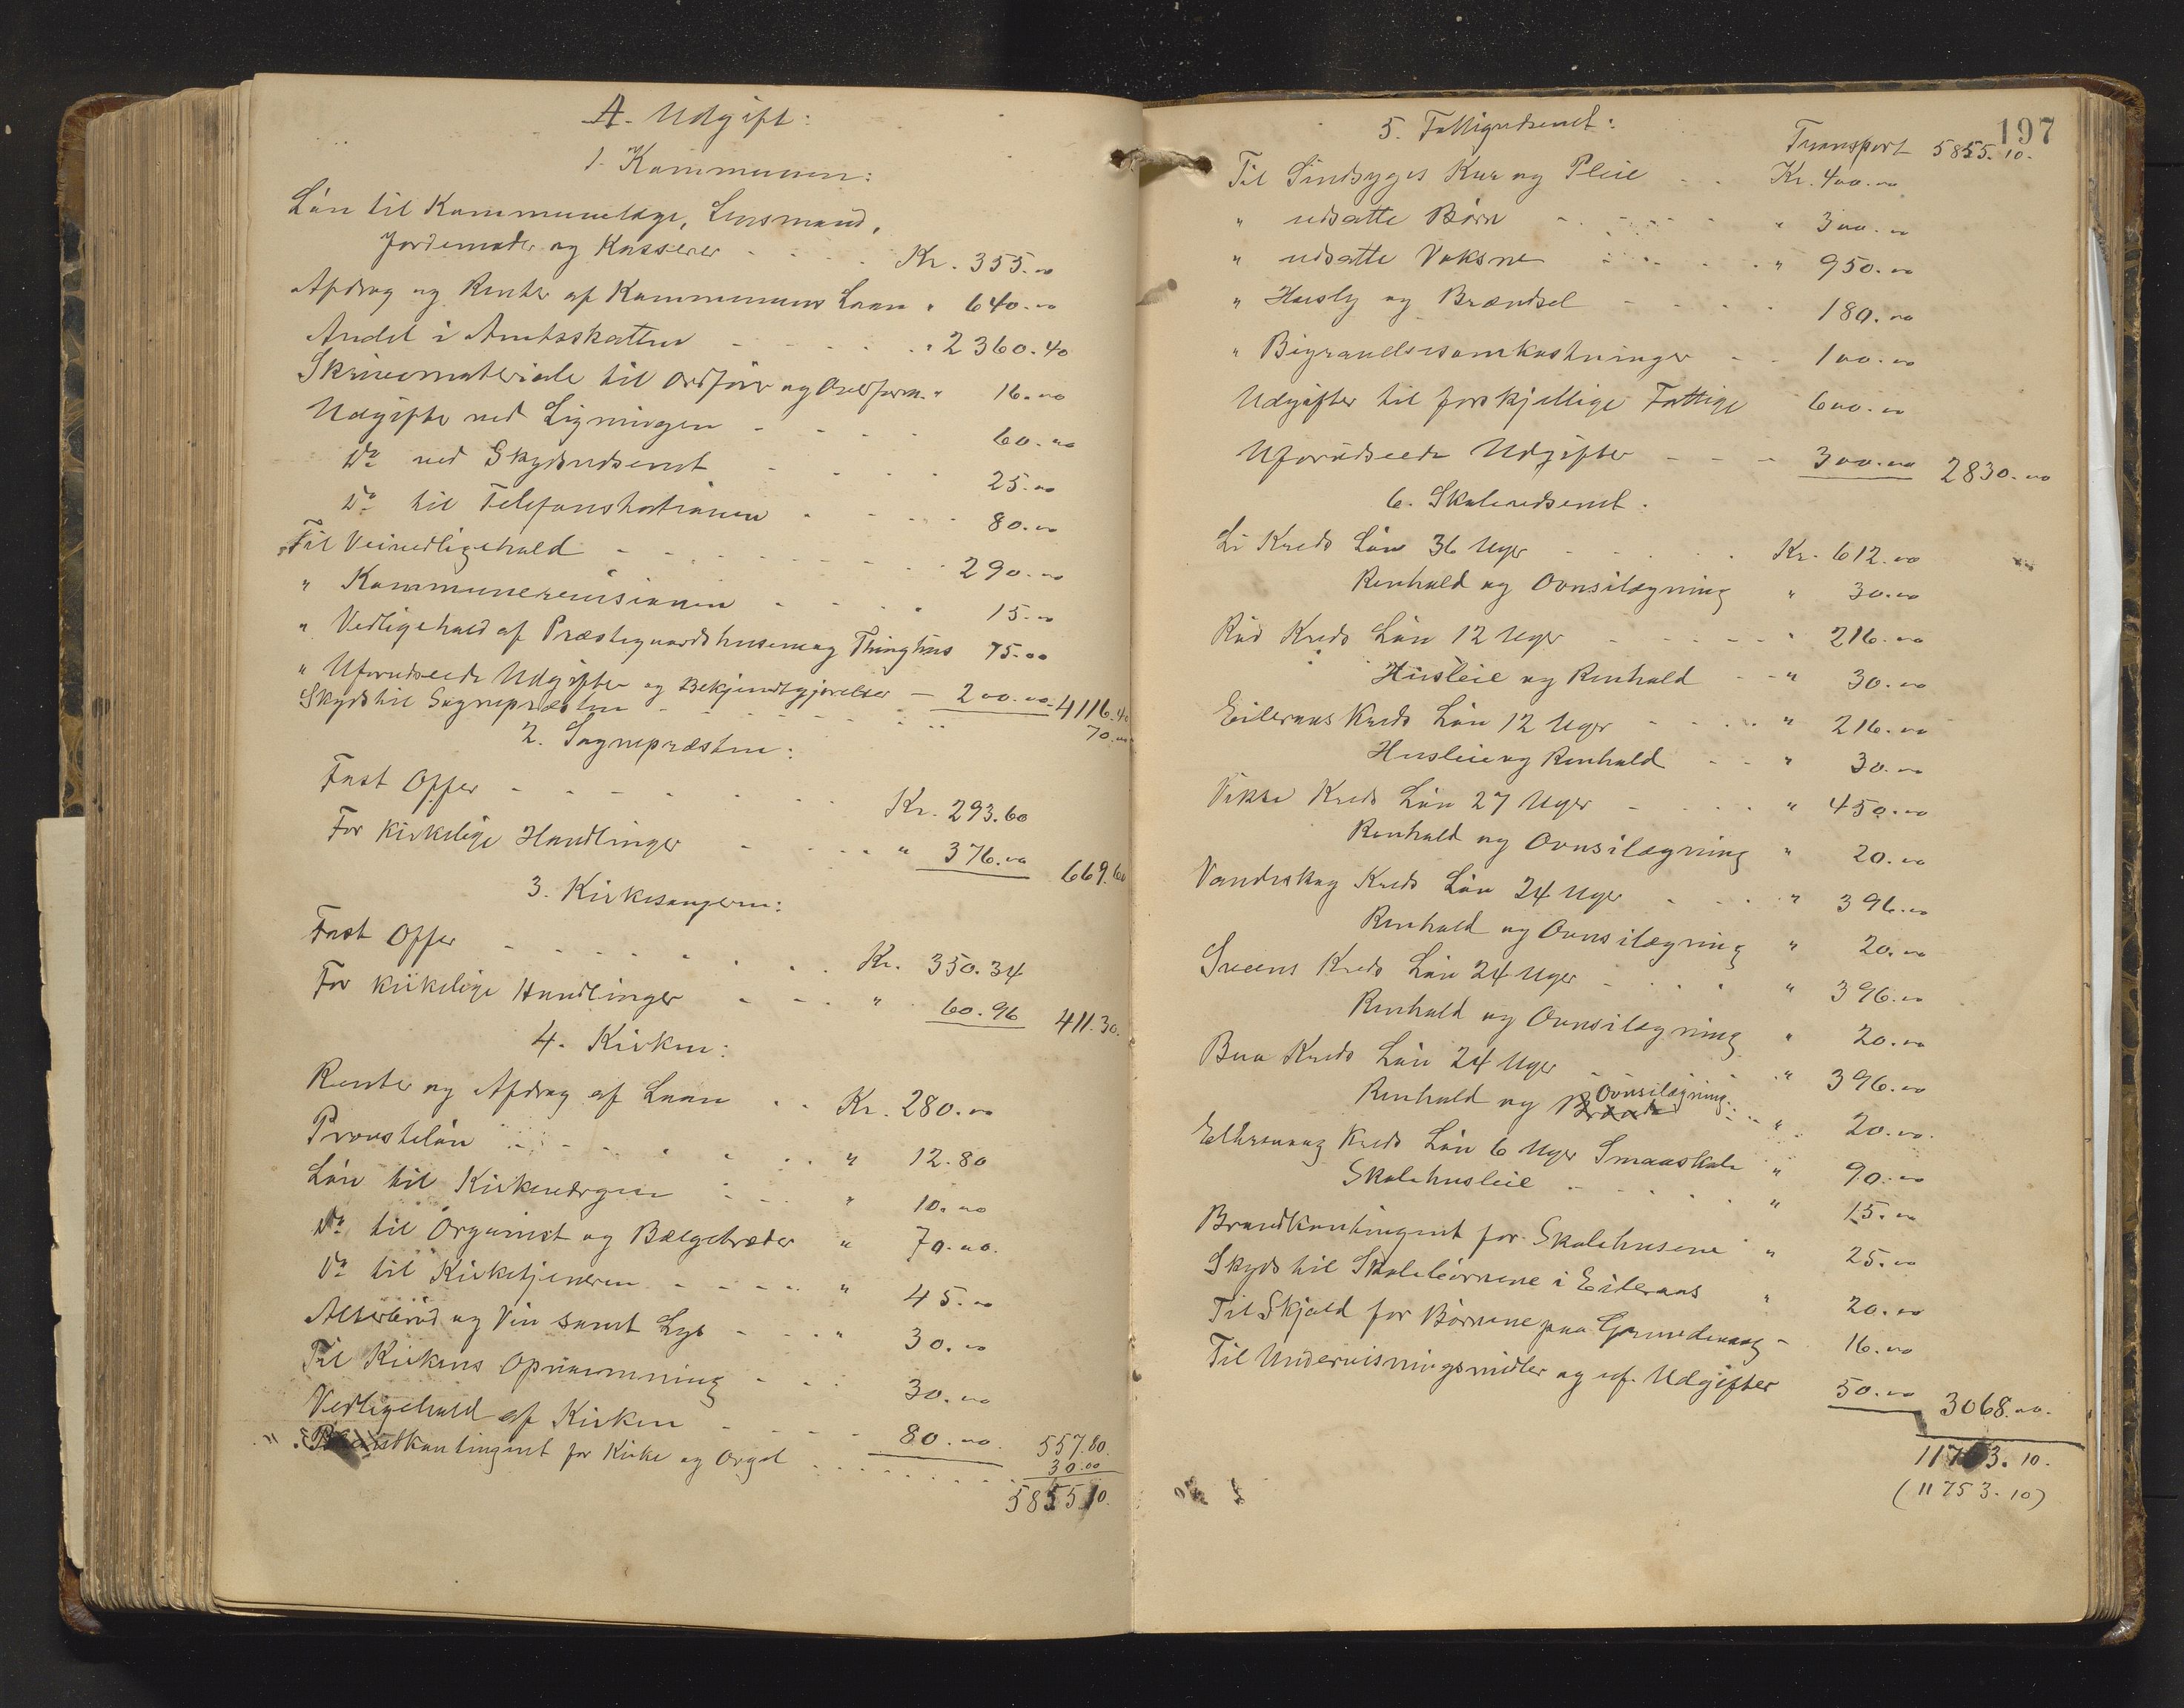 A. Udgift:
1. Kommunen:
Løn til Kommunelæge, Lensmand,
Jordemoder og Kasserer - - - - Kr. 355.00
Afdrag og Renter af Kommunens Laan " 640.00
Andel i Amtsskatten - - - - - " 2360.40
Skrivematerialer til Ordfører og Overform. " 16.00
Udgifter ved Ligningen - - - - 60.00
Do ved Skydsvæsenet - - - - 25.00
Do til Telefonstationen - - - - 80.00
Til Veivedligehold - - - - - - 290.00
" Kommunerevisionen - - - - 15.00
" Vedligehold af Præstegaardshusene og Thinghus 75.00
" Uforudseede Udgifter og Bekjendtgjørelser - 200.00 4116.40
Skyds til Sognepræsten - - - - - - - 70.00
2. Sognepræsten:
Fast Offer - - - - - - - Kr. 293.60
For kirkelige Handlinger - - - - " 376.00 669.60
3. Kirkesangeren:
Fast Offer - - - - - - - Kr. 350.34
For kirkelige Handlinger - - - " 60.96 411.30.
4. Kirken:
Renter og Afdrag af Laan - - Kr. 280.00
Provsteløn - - - - - - - " 12.80
Løn til Kirkeværgen - - - " 10.00
Do til Organist og Bælgetræder " 70.00.
Do til Kirketjeneren - - - - " 45.00
Alterbrød og Vin samt Lys - - - " 30.00
Til Kirkens Opvarmning - - - 30.00
Vedligehold af Kirken - - - - 80.00. 557.80.
" Brandkontingent for Kirke og Orgel - - - - - - 30.00
5855.10.
197
5. Fattigvæsenet: Transport 5855.10.
Til Sindsyges Kur og Pleie - - Kr. 400.00
" udsatte Børn - - - - - " 300.00
" udsatte Voksne - - - - " 950.00
" Husly og Brændsel - - - - 180.00
" Begravelsesomkostninger - - 100.00
Udgifter til forskjellige Fattige 600.00
Uforudseede Udgifter - - - 300.00 2830.00
6. Skolevæsenet.
Li Kreds Løn 36 Uger - - - - - Kr. 612.00
Renhold og Ovnsilægning " 30.00
Rød Kreds Løn 12 Uger - - - - - " 216.00
Husleie og Renhold - - " 30.00
Eileraas Kreds Løn 12 Uger - - - - " 216.00
Husleie og Renhold - - " 30.00
Vikse Kreds Løn 27 Uger - - - - " 450.00
Renhold og Ovnsilægning " 20.00
Vandeskog Kreds Løn 24 Uger - - - " 396.00
Renhold og Ovnsilægning " 20.00
Sveens Kreds Løn 24 Uger - - - - " 396.00
Renhold og Ovnsilægning " 20.00
Bua Kreds Løn 24 Uger - - - - " 396.00
Renhold og Ovnsilægning - - " 20.00.
Kreds Løn 6 Uger Smaaskole " 90.00
Skolehusleie - - - - - " 15.00
Brandkontingent for Skolehusene " 25.00
Skyds til Skolebørnene i Eileraas " 20.00
Til Skjold for Børnene paa - 16.00
Til Undervisningsmidler og uf. Udgifter 50.00 3068.00.
11753.10.
(11753.10)